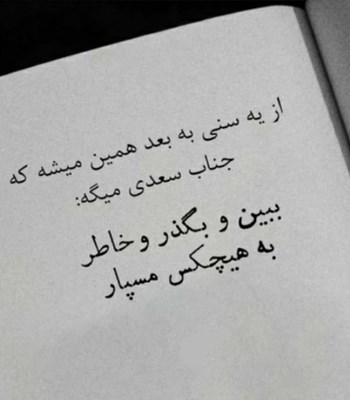 از یه سنی به بعد همین میشه که
جناب سعدی میگه:
ببین و بگذر و خاطر
به هیچکس مسپار